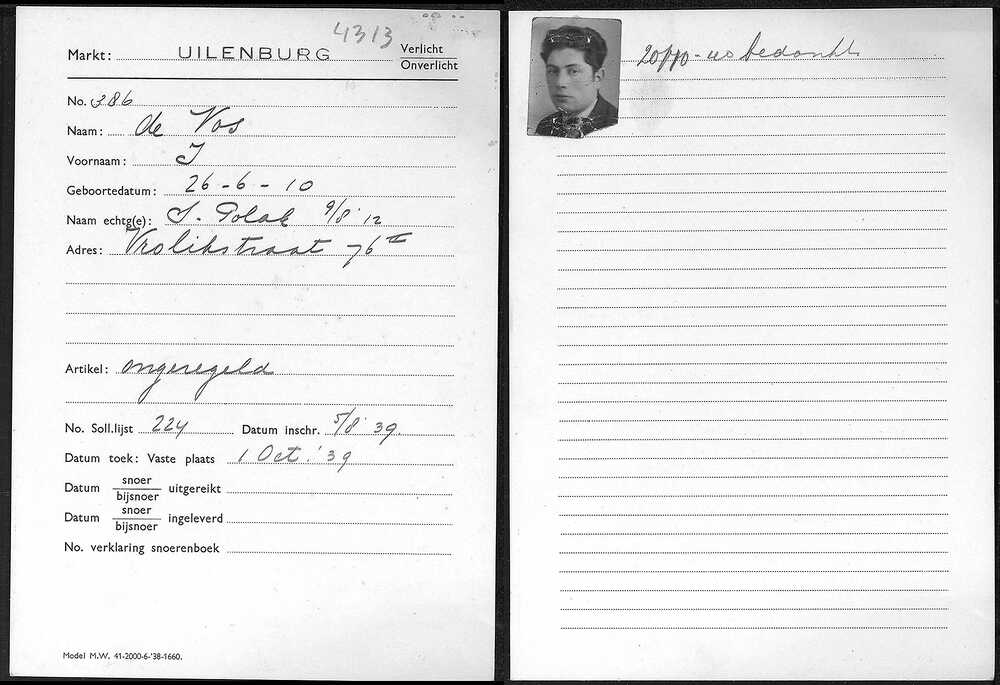 4313
Markt: UILENBURG Verlicht
Onverlicht
No. 386
Naam: de Vos
Voornaam: J
Geboortedatum: 26-6-10
Naam echtg(e): S. Polak 9/8' 12
Adres: Vrolikstraat 76 II
Artikel: ongeregeld
No. Soll.lijst 224 Datum inschr. 5/8' 39.
Datum toek: Vaste plaats 1 Oct.' 39
Datum snoer
bijsnoer uitgereikt
Datum snoer
bijsnoer ingeleverd
No. verklaring snoerenboek
Model M.W. 41-2000-6-'38-1660.
bedankt